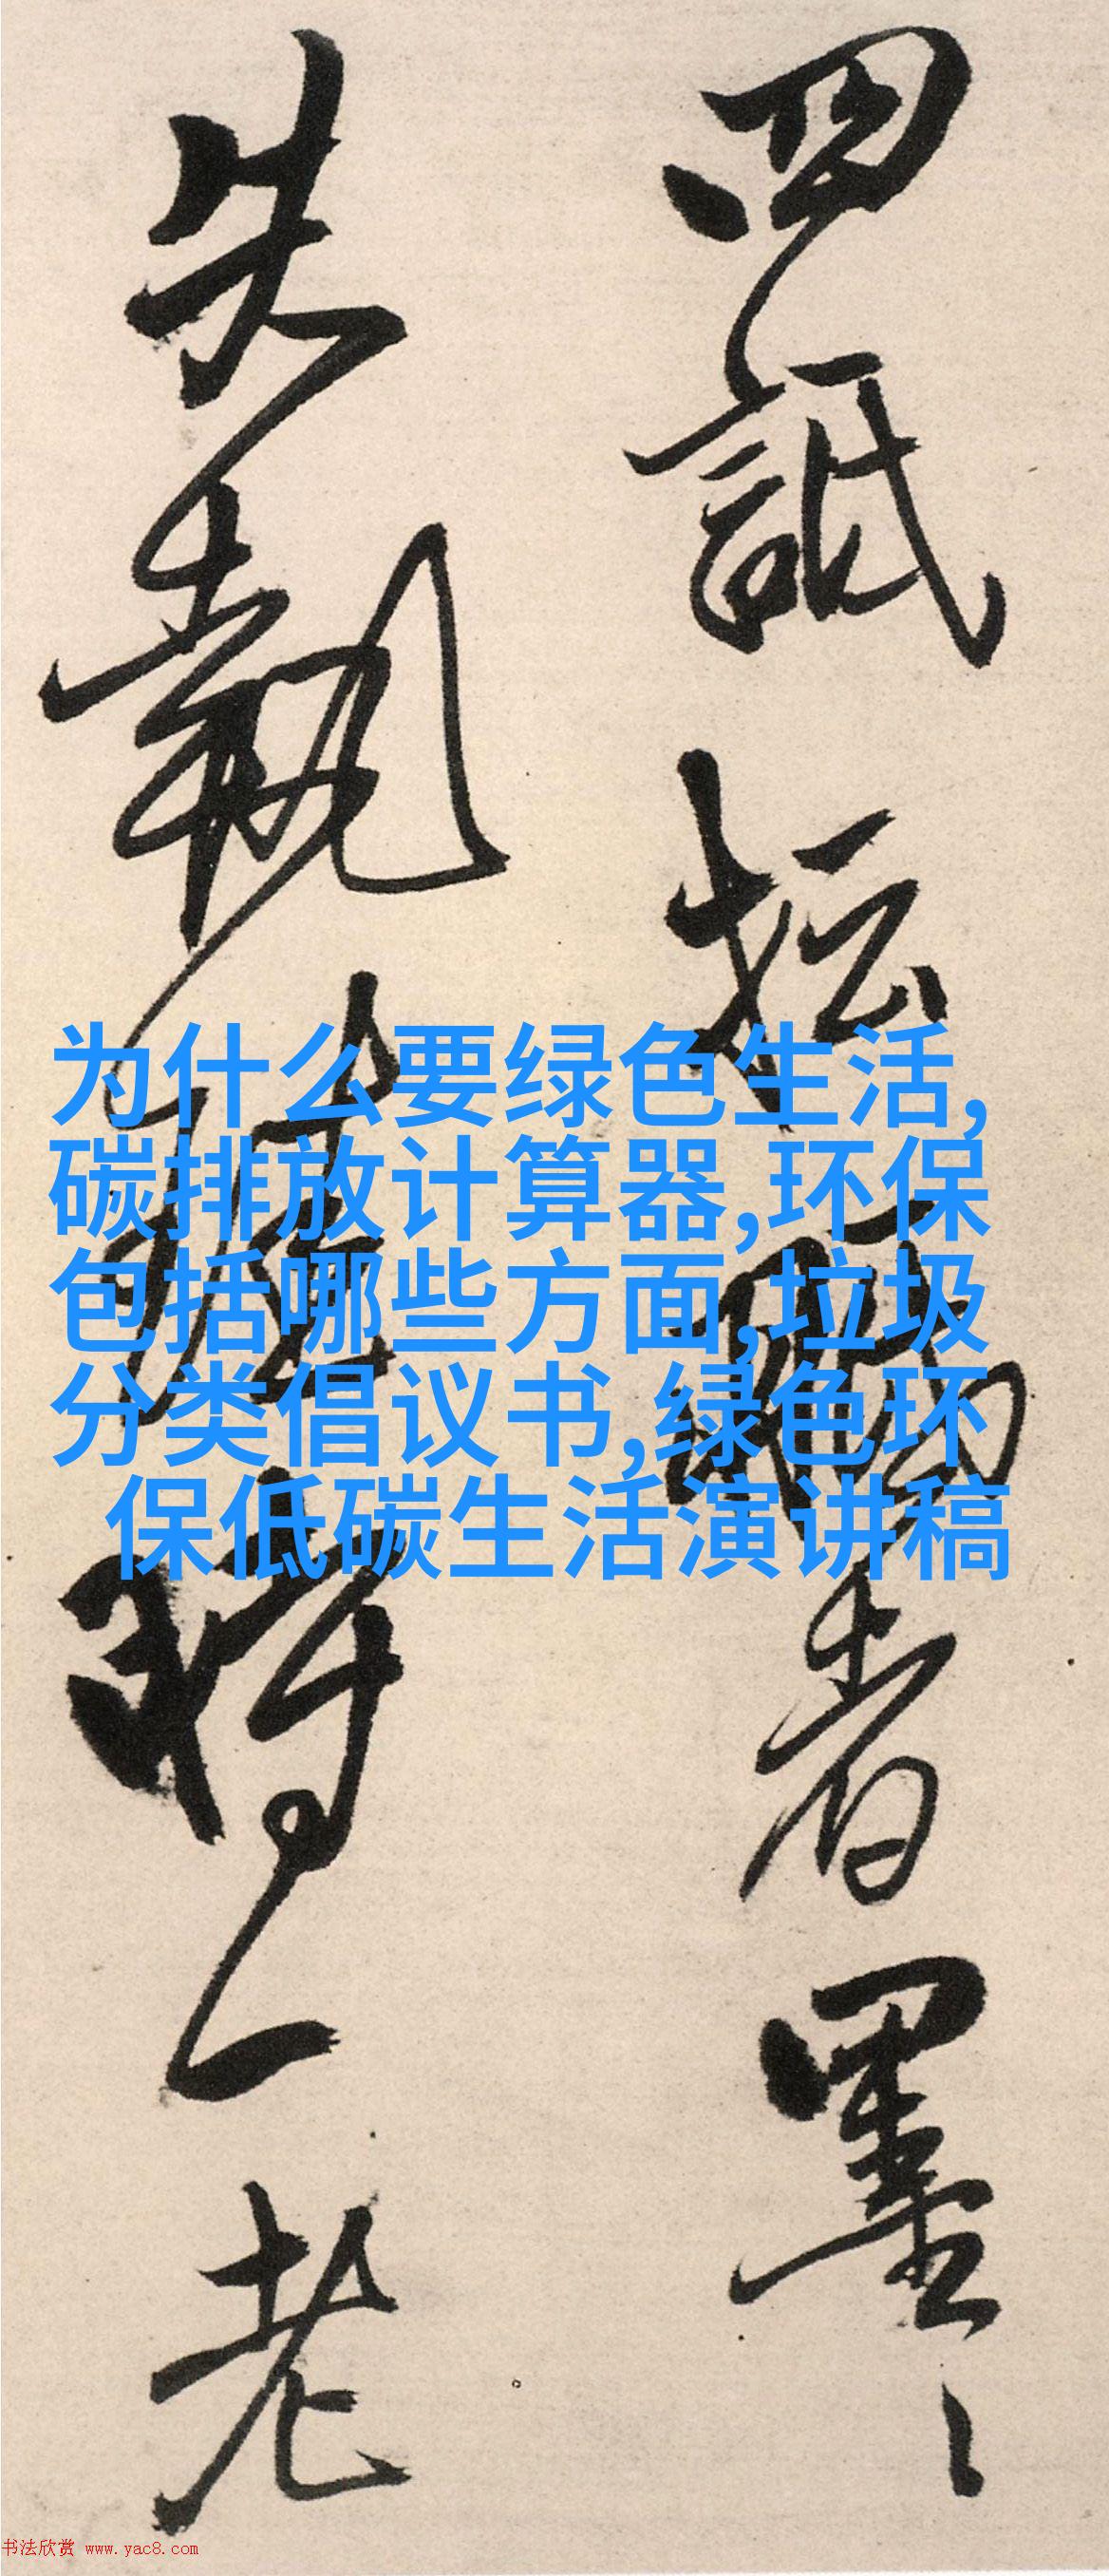 四詆坛
者墨
失執
时一老
为什么要绿色生活,
碳排放计算器,环保
包括哪些方面,垃圾
分类倡议书,绿色环
保低碳生活演讲稿
书法欣赏 www.yac8.com